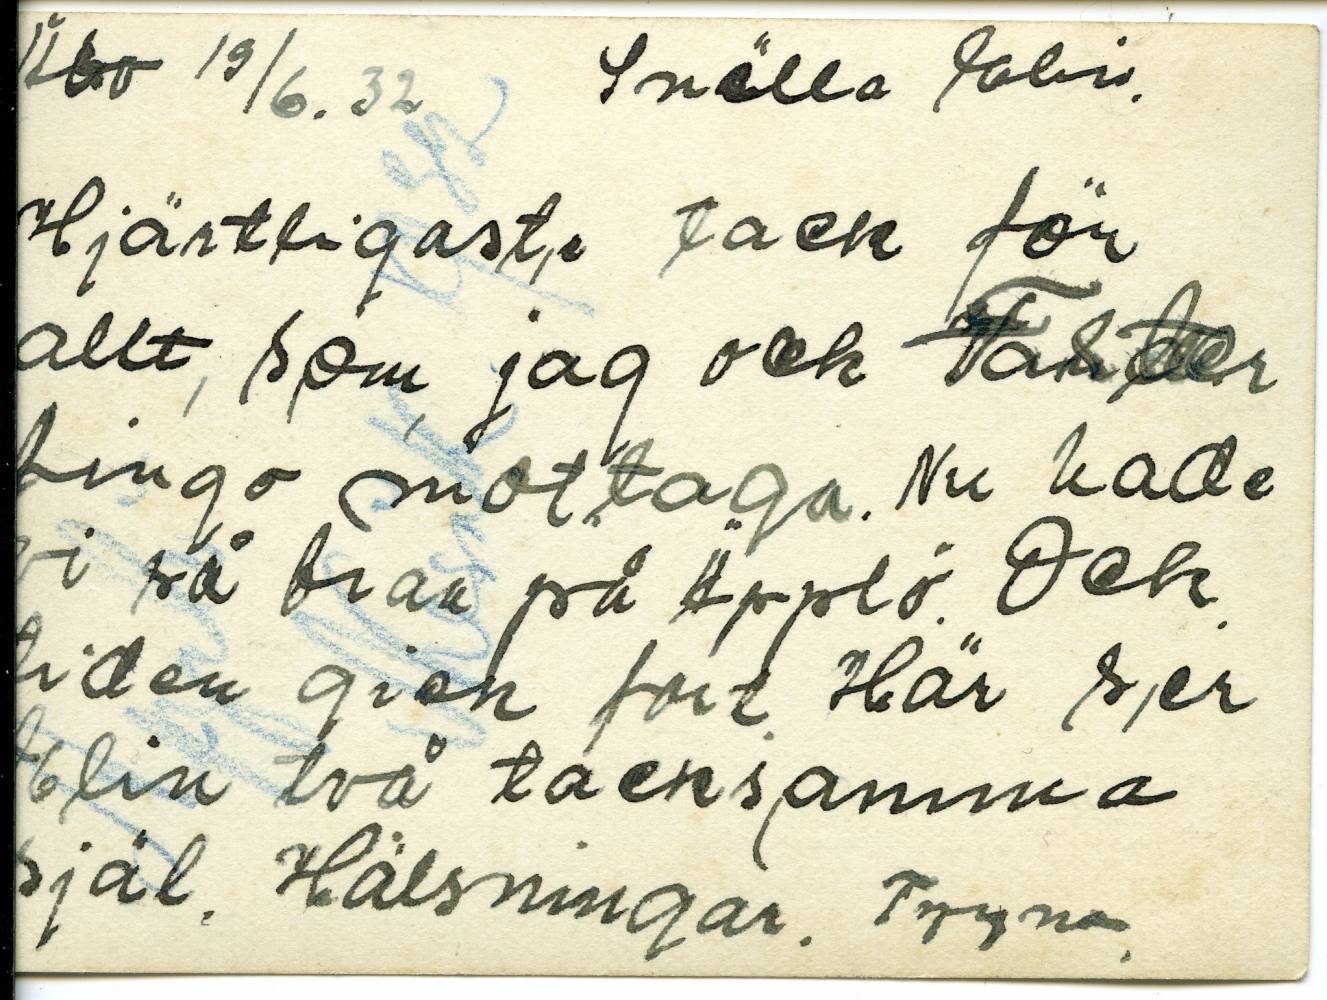 Åbo 19/6. 32 Snälla Elin.
Hjärtligaste tack för
allt, som jag och
fingo mottaga. Nu hade
vi så bra på Äpplö. Och
tiden gick fort. Här ser
Elin två tacksamma
själ. Hälsningar. Tyyne.